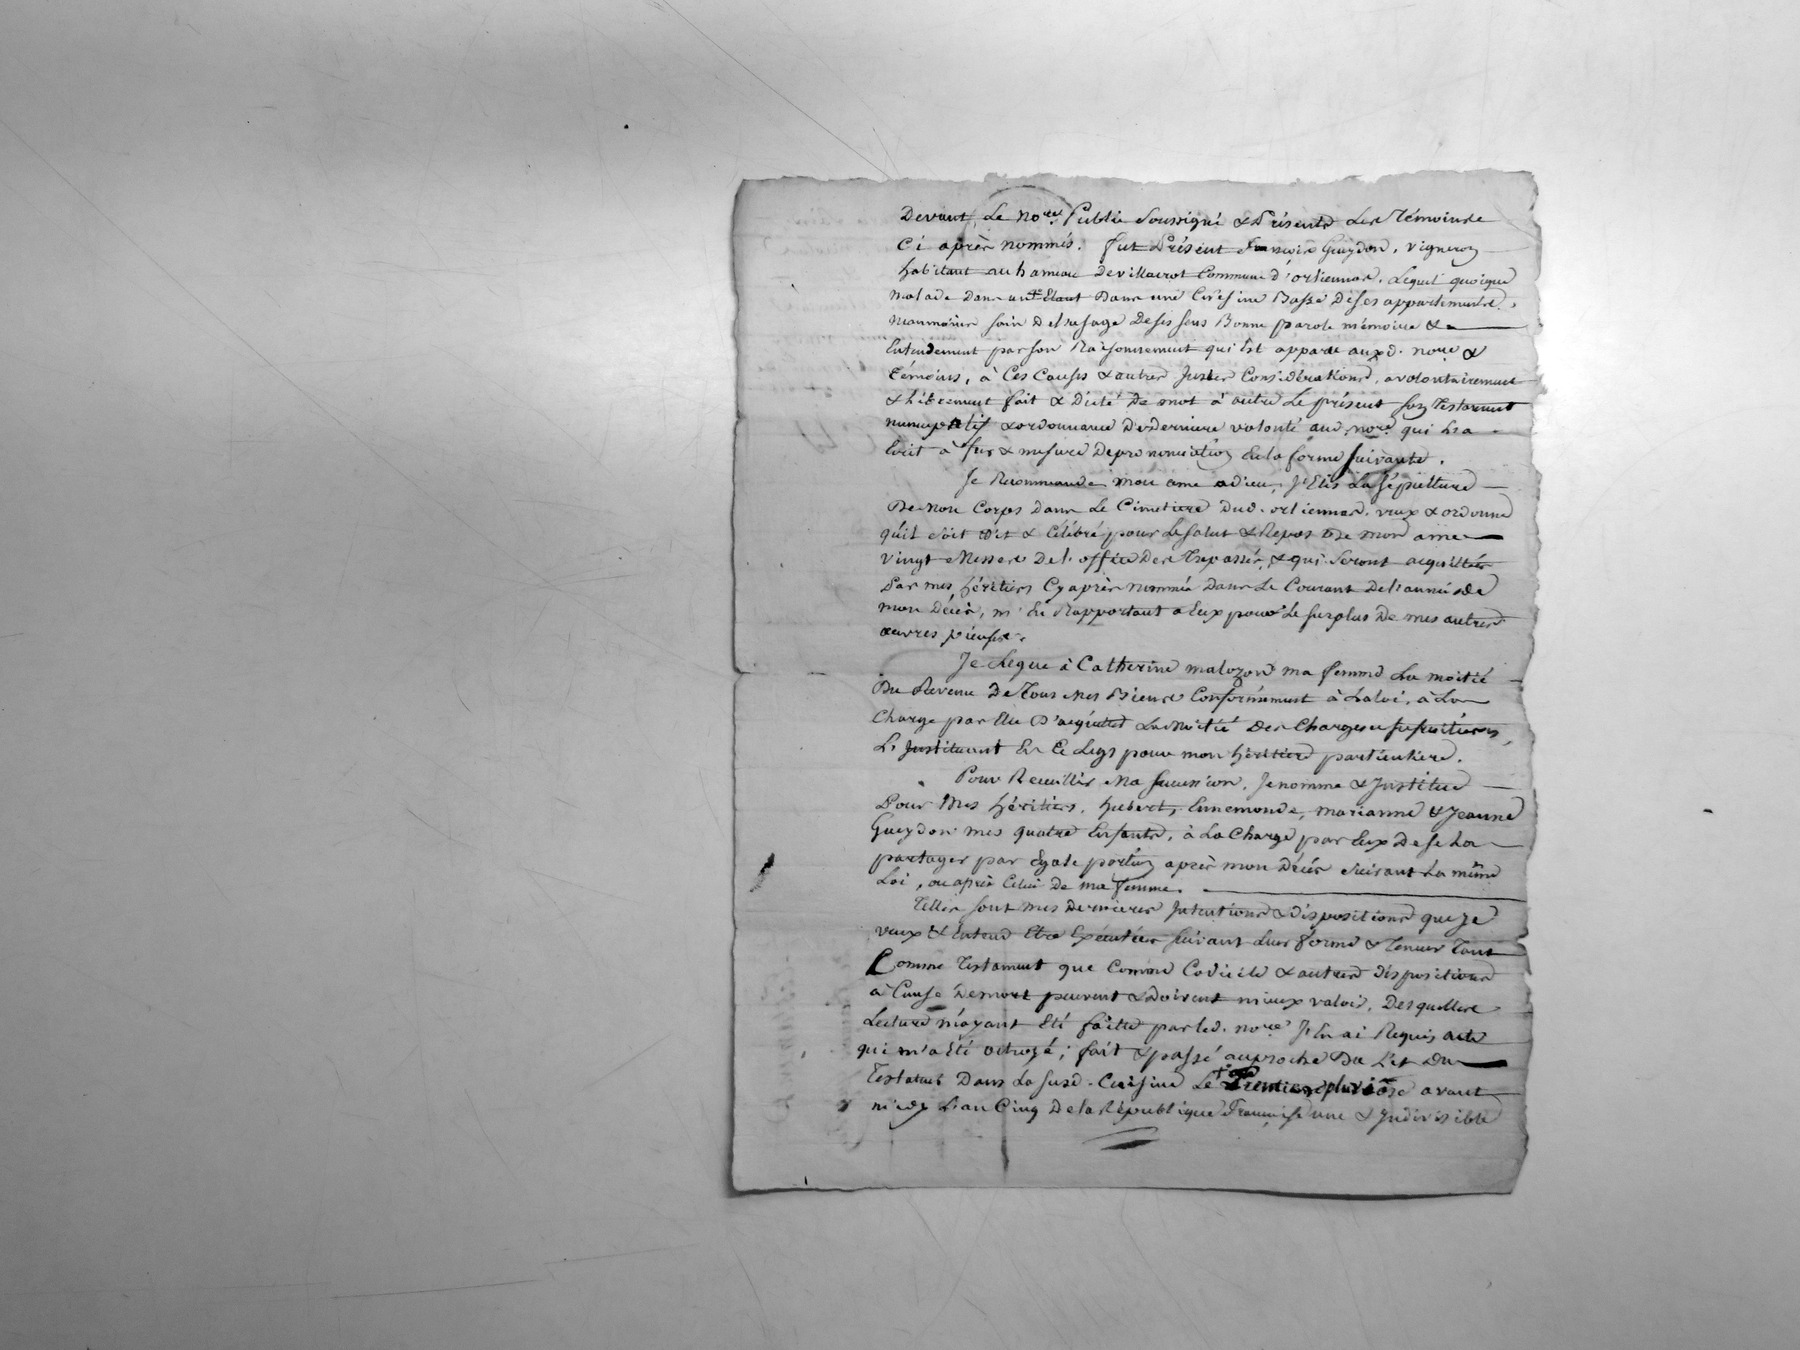 Devant Le no.re Public soussigné & Présents Les Témoins
Ci après nommés. fut Présent françois Gueydon, vigneron
habitant au hameau de villairot Commune d'orliennas. Lequel quoique
malade dans un Lit Etant Dans une Cuisine Basse De ses appartements.
neanmoins sain De l'usage De ses sens Bonne parole mémoire &
Entendement par son Raisonnement qui Est apparu auxd. no.re &
témoins, à Ces Causes & autres justes Considérations, a volontairement
& librement fait & dicté De mot à autre Le présent son Testament
nuncupatif & ordonnance De Derniere volonté aud. no.re qui L'a
Ecrit à fur & mesure De prononciation En la forme suivante.
Je Recommande mon ame a dieu, J'Elis La sépulture
De mon Corps dans Le Cimetiere dud. orliennas. veux & ordonne
qu'il soit dit & Célébré pour Le salut & Repos De mon ame
vingt Messes De l'office Des Trepassés, & qui seront acquittés
Par mes héritiers Cy après nommés Dans Le Courant De l'année de
mon Décès, m'En Rapportant a Eux pour Le surplus De mes autres
œuvres pieuses.
Je Legue à Catherine malozon ma femme La moitié
Du Revenu De Tous Mes Biens Conformément à La loi, à La
Charge par Elle D'acquitter La moitié Des Charges usufruitieres,
L'Instituant En Ce Legs pour mon héritiere particuliere.
Pour Recueillir Ma succession, Je nomme & Institue
Pour Mes héritiers, hubert, Ennemonde, marianne & Jeanne
Gueydon mes quatre Enfants, à La Charge par Eux De se La
partager par Egale portion après mon Décès suivant La même
Loi, ou après Celui De ma femme.
Telles sont mes dernieres Intentions & Dispositions que Je
veux & Entend Etre Exécutées suivant Leur forme & Teneur Tant
Comme Testament que Comme Codicile & autres dispositions
à Cause De mort peuvent & Doivent mieux valoir. Desquelles
Lecture m'ayant Eté faite par led. no.re J'En ai Requis acte
qui m'a Eté octroyé; fait & passé au proche Du Lit Du
Testateur Dans La susd. Cuisine Le + pluviose avant
midy L'an Cinq De la République Française une & Indivisible